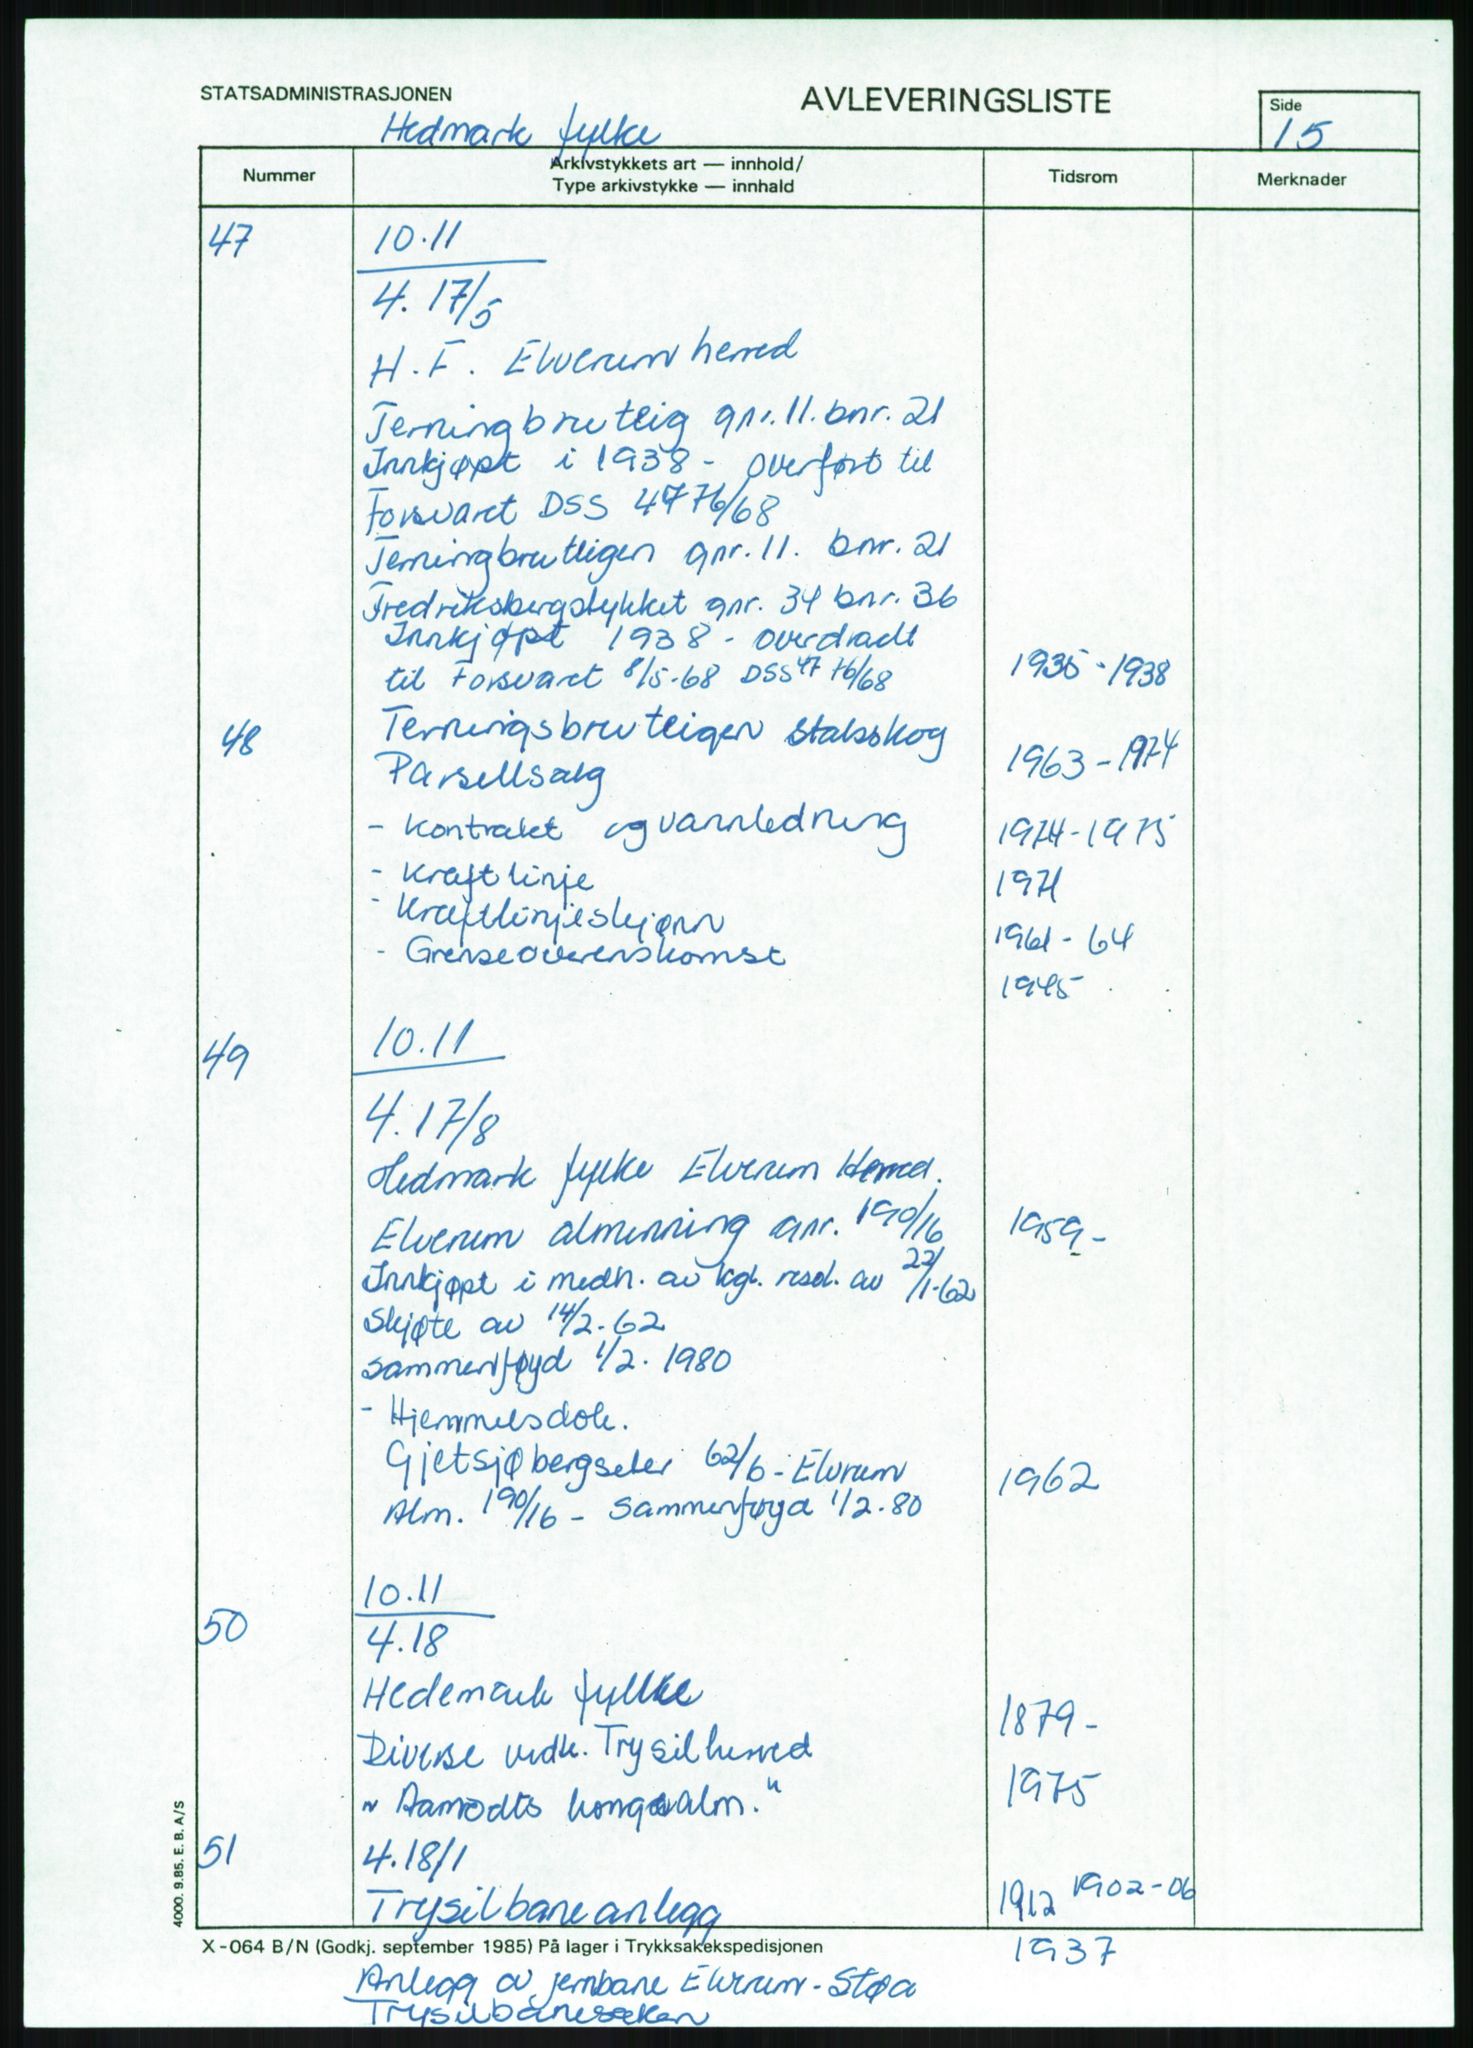 STATSADMINISTRASJONEN
AVLEVERINGSLISTE
Side
15
Hedmark fylke
Nummer
Arkivstykkets art — innhold/
Type arkivstykke — innhald
Tidsrom
Merknader
47
10.11
4. 17/5
H.F. Elverum herred
Terningbruteig gnr. 11. bnr. 21
Innkjøpt i 1938 - overført til
Forsvaret DSS 4776/68
Terningbruteigen gnr. 11. bnr. 21
Fredriksbergstykket gnr. 34 bnr. 36
Innkjøpt 1938 - overdradt
til Forsvaret 8/5-68 DSS 47 76/68 1935-1938
48 Terningsbruteigen statsskog
Parsellsalg 1963-1974
- Kontrakt og vannledning 1974-1975
- Kraftlinje 1971
- Kraftlinjeskjønn 1961-64
- Grenseoverenskomst 1945
49
10.11
4.17/8
Hedmark fylke Elverum Herred.
Elverum almenning gnr. 190/16 1959-
Innkjøpt i medh. av kgl. resol. av 22/1-62
Skjøte av 14/2-62
sammenføyd 1/2. 1980
- Hjemmelsdok.
Gjetsjøbergseter 62/6 - Elverum 1962
Alm. 190/16 - Sammenføyd 1/2.80
10.11
50
4.18
Hedemark fylke
Diverse vedk. Trysil herred 1879-
"Aamodts kongealm." 1975
51 4.18/1
Trysilbaneanlegg 1912 1902-06
X-064 B/N (Godkj. september 1985) På lager i Trykksakekspedisjonen
1937
Anlegg av jernbane Elverum-Støa
Trysilbanesaken
4000. 9.85. E. B. A/S